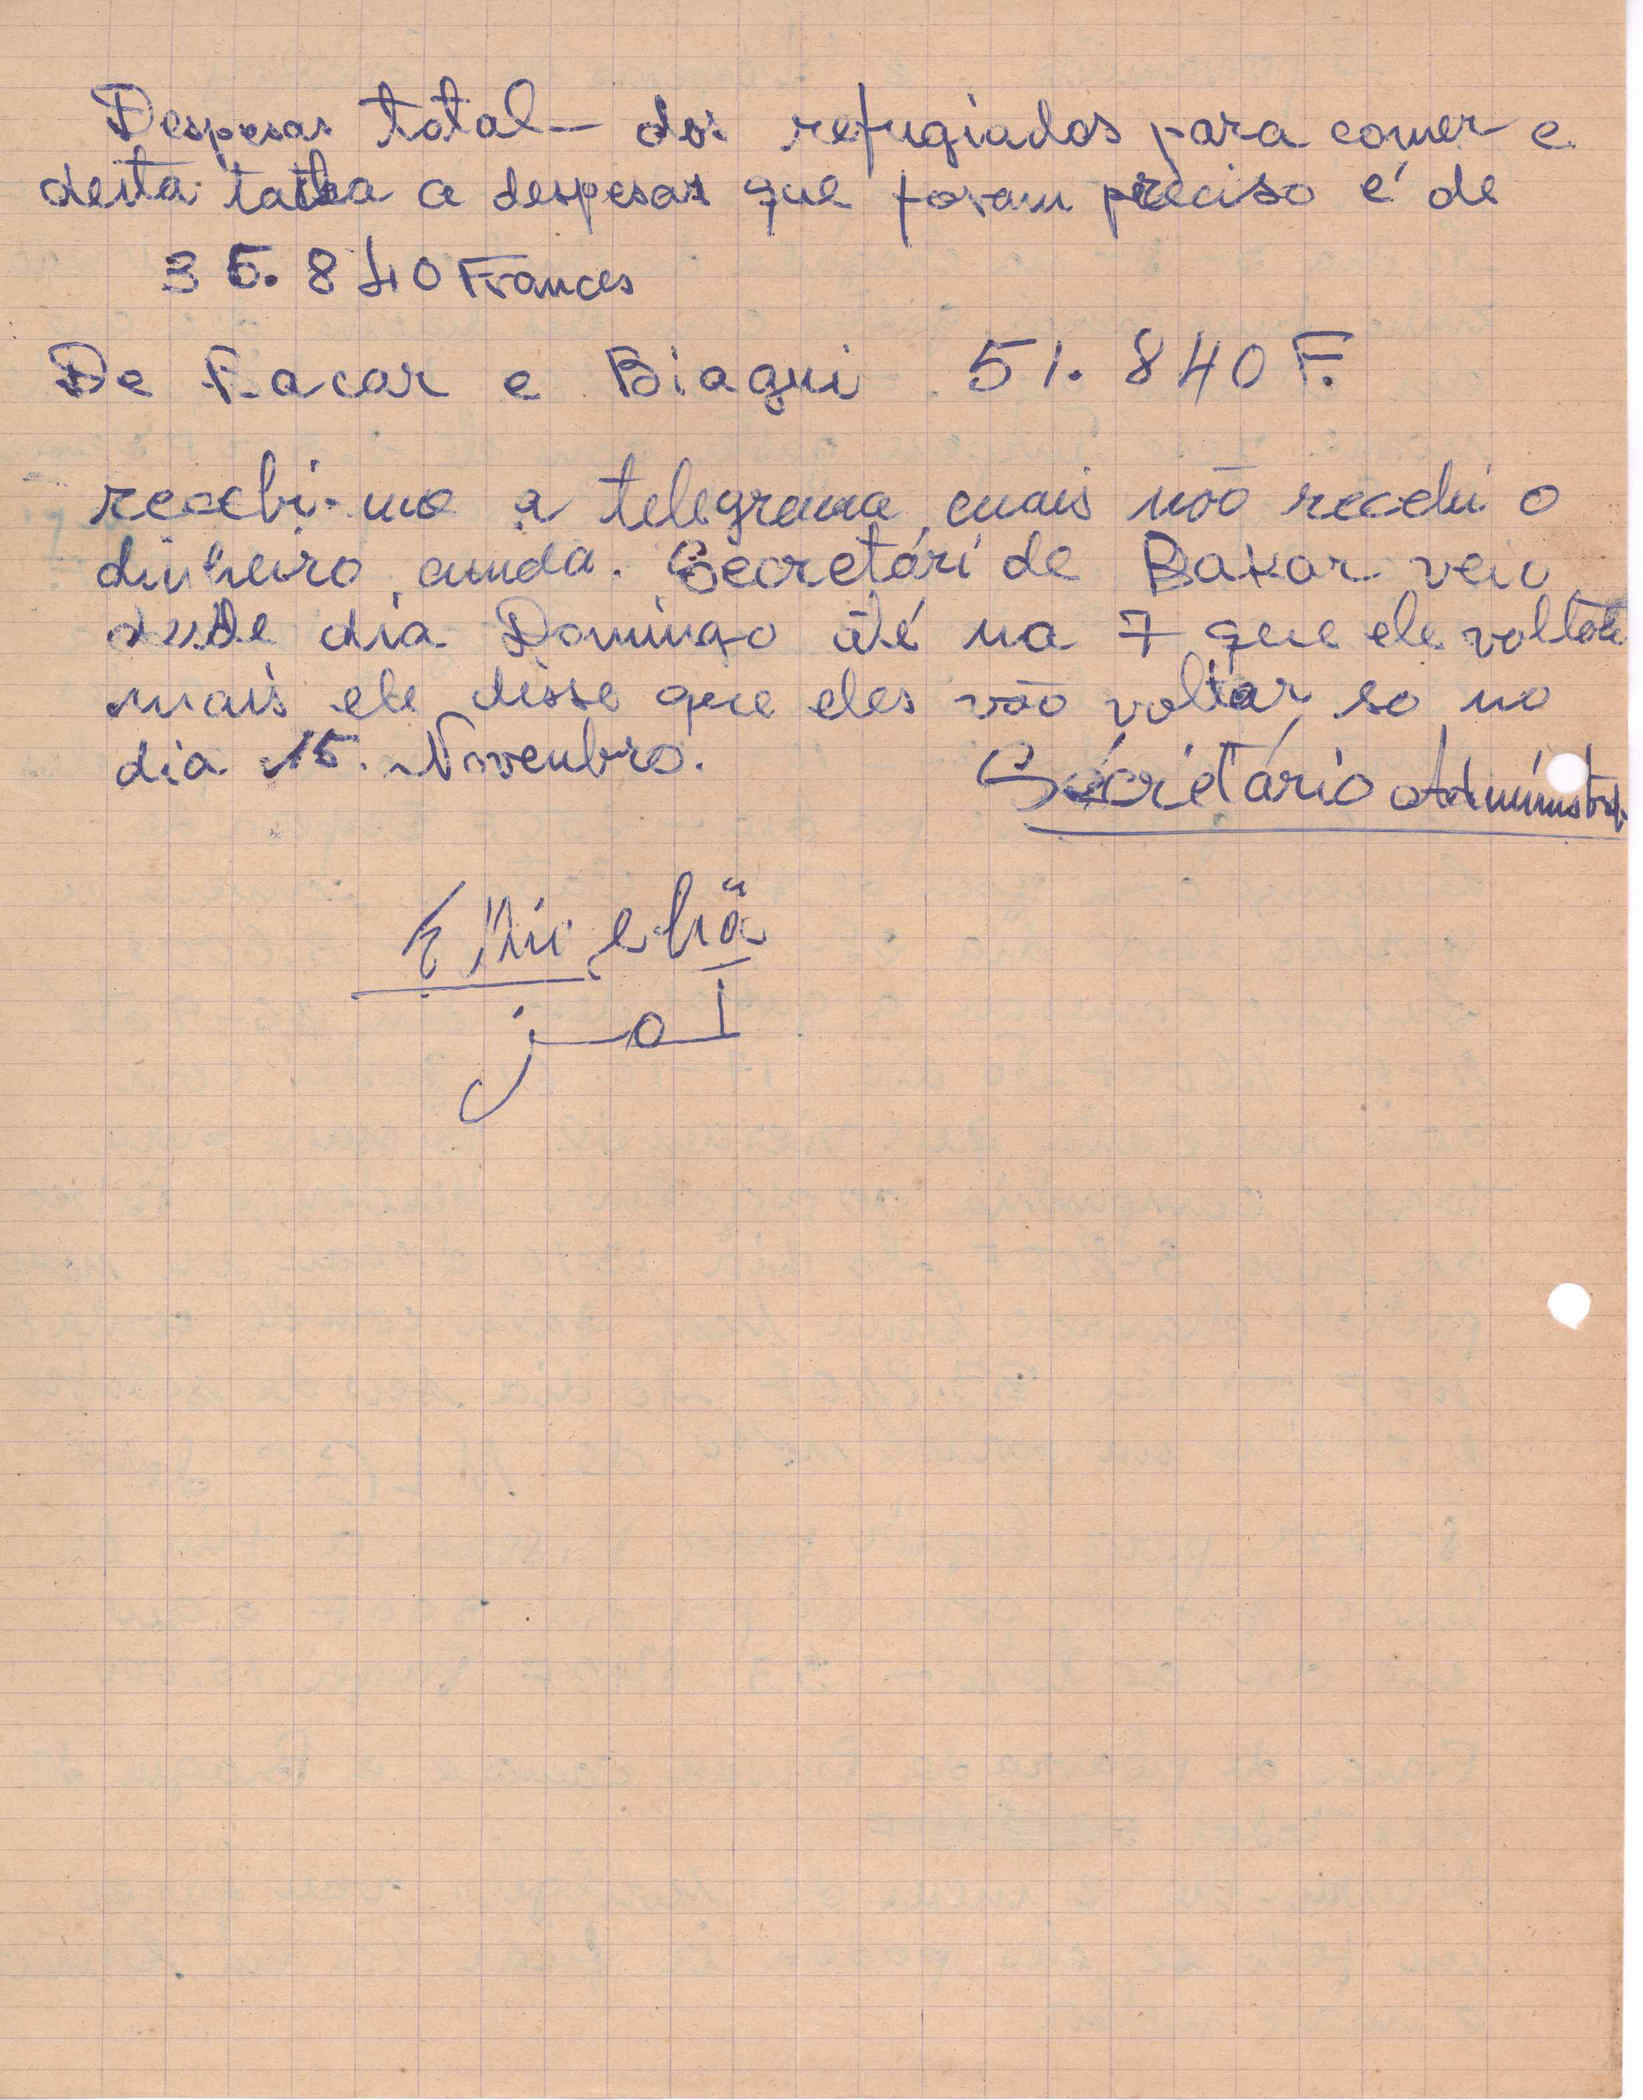 Despesas total - dos refugiados para comer e
desta a despesas que foram preciso é de
35.840 Frances
De Facar e Biagui 51.840 F.
recebi-mo a telegrama, mais não recebi o
dinheiro ainda. Secretári de Bakar veiu
desde dia Domingo até na 7 que ele voltou
mais ele disse que eles vão voltar so no
dia 15. Novenbro.
Sécrietário Administrat.